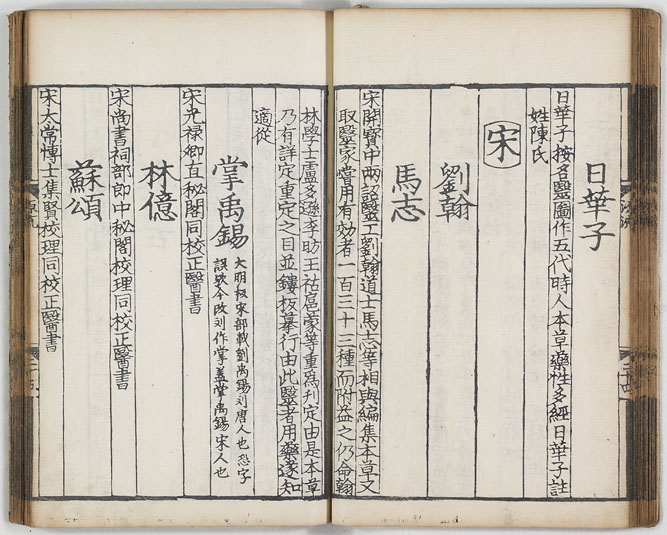 日華子
日華子按名醫圖作五代時人本草藥性多經日華子註
姓陳氏
宋
劉翰
馬志
宋開寶中兩詔醫工劉翰道士馬志等相與編集本草文
取醫家嘗用有効者一百三十三種而附益之仍命翰
林學士盧多遜李昉王祜扈蒙等重爲刋定由是本草
乃有詳定重定之目並鏤板摹行由此醫者用藥遂知
適從
掌禹錫
大明板宋部載劉禹錫刘唐人也恐字
誤欤今改刘作掌蓋掌禹錫宋人也
宋光禄卿直秘閣同校正醫書
林億
宋尚書祠部郎中秘閣校理同校正醫書
蘇頌
宋太常博士集賢校理同校正醫書